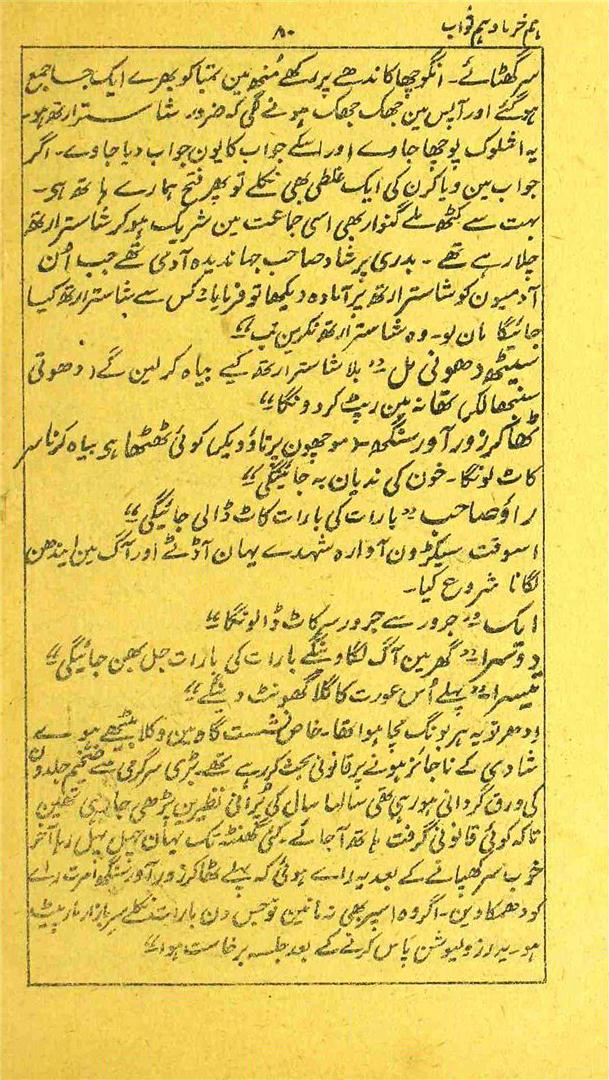 ہم خرما و ہم ثواب
۸۰
سر گھٹائے۔ انگوچھا کاندھے پر رکھے مُنھ مین تمباکو بھرے ایک جا جمع
ہوگئے اور آپس مین جھک جھک ہونے لگی کہ ضرور شاسترارتھ ہو۔
یہ اشلوک پوچھا جاوے اور اسکے جواب کا یون جواب دیا جاوے۔ اگر
جواب مین ویاکرن کی ایک غلطی بھی نکلے تو پھر فتح ہمارے ہاتھ ہی۔
بہت سے کٹھ ملے گنوار بھی اسی جماعت مین شریک ہوکر شاسترارتھ
چلا رہے تھے ۔ بدری پرشاد صاحب جہاندیدہ آدمی تھے جب اُن
آدمیون کو شاسترارتھ پر آمادہ دیکھا تو فرمایا۔ کس سے شاسترارتھ کیا
جائیگا مان لو۔ وہ شاسترارتھ نکرین تب“
سیٹھ دھونی مل ”بلا شاسترارتھ کیے بیاہ کر لین گے (دھوتی
سنبھالکر) تھانہ مین رپٹ کر دونگا“
ٹھاکر زور آور سنگھ۔ (موچھون پر تاؤ دیکر) کوئی ٹھٹھا ہی بیاہ کرنا سر
کاٹ لونگا۔ خون کی ندیان بہ جائینگی“
راؤ صاحب ”بارات کی بارات کاٹ ڈالی جائیگی“
اسوقت سیکڑون آوارہ شہدے یہان آ ڈٹے اور آگ مین ایندھن
لگانا شروع کیا۔
ایک ”جرور سے جرور سر کاٹ ڈالونگا“
دوسرا ”گھر مین آگ لگا دینگے بارات کی بارات جل بھن جائیگی“
تیسرا ”پہلے اُس عورت کا گلا گھونٹ دینگے“
ادھر تو یہ ہربونگ مچا ہوا تھا۔ خاص نشست گاہ مین وکلا بیٹھے ہوے
شادی کے ناجائز ہونے پر قانونی بحث کر رہے تھے۔ بڑی سرگرمی سے ضخیم جلدون
کی ورق گردانی ہو رہی تھی سالہا سال کی پُرانی نظیرین پڑھی جا رہی تھین
تاکہ کوئی قانونی گرفت ہاتھ آ جائے۔ کئی گھنٹہ تک یہان چہل پہل رہا آخر
خوب سر کھپانے کے بعد یہ راے ہوئی کہ پہلے ٹھاکر زور آور سنگھ امرت راے
کو دھمکا دین۔ اگر وہ اسپر بھی نہ مانین تو جس دن بارات نکلے سر بازار مار پیٹ
ہو۔ یہ رزولیوشن پاس کرنے کے بعد جلسہ برخاست ہوا“